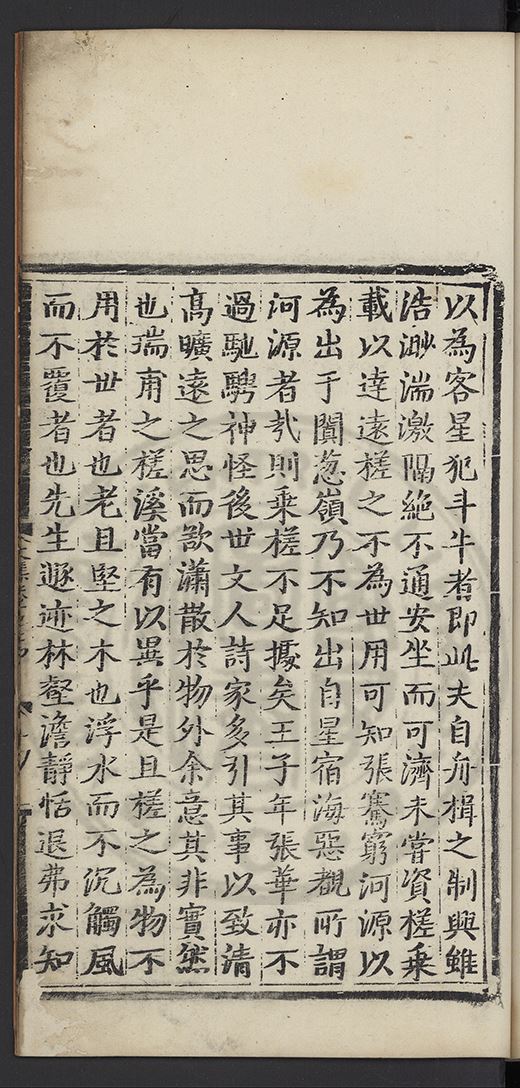 以為客星犯斗牛者即此夫自舟楫之制興雖
浩渺湍激隔絶不通安坐而可濟未嘗資槎乗
載以達遠槎之不為世用可知張騫窮河源以
為出于闐葱嶺乃不知出自星宿海惡覩所謂
河源者㢤則乗槎不足擾矣王子年張華亦不
過馳騁神怪後世文人詩家多引其事以致清
髙曠遠之思而㰱瀟散於物外余意其非實然
也瑞甫之槎溪當有以異乎是且槎之為物不
用於世者也老且堅之木也浮水而不沉觸風
而不覆者也先生遯迹林壑澹靜恬退弗求知